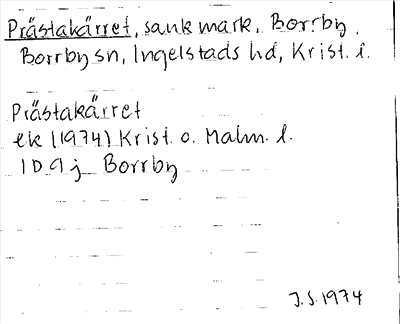 Prästakärret, sank mark, Borrby,
Borrby sn, Ingelstads hd, Krist. l.
Prästakärret
ek (1974) Krist. o. Malm. l.
1D9j Borrby
J.S. 1974